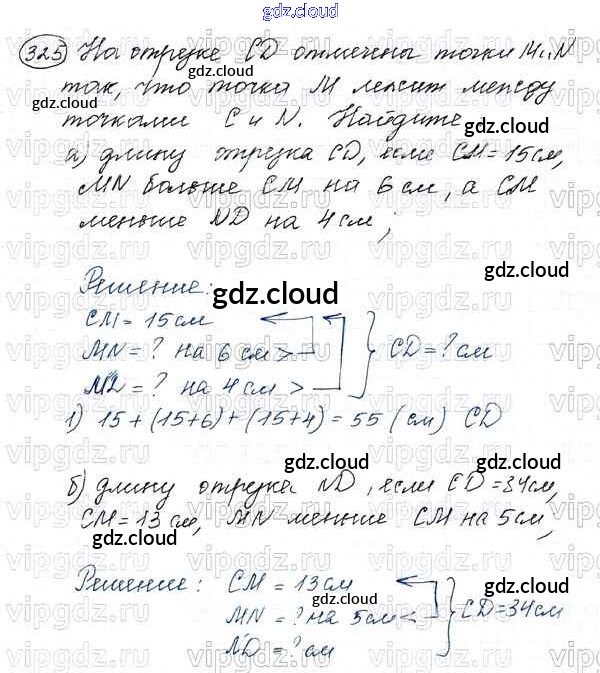 gdz.cloud
325 На отрезке CD отмечены точки M и N
так, что точка M лежит между
точками C и N. Найдите
а) длину отрезка CD, если CM = 15 см,
MN больше CM на 6 см, а CM
меньше ND на 4 см;
Решение:
gdz.cloud
CM = 15 см
MN = ? на 6 см > } CD = ? см
ND = ? на 4 см >
1) 15 + (15+6) + (15+4) = 55 (см) CD
б) длину отрезка ND, если CD = 34 см,
CM = 13 см, MN меньше CM на 5 см,
Решение: CM = 13 см
MN = ? на 5 см < } CD = 34 см
ND = ? см